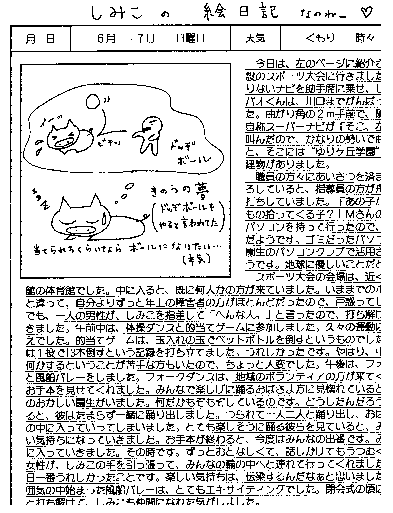 しみこの 絵日記 なのねー ♡
月 日 6月 7日 日曜日 天気 くもり 時々
ドッヂ
ボール
きのうの夢
ドッヂボールを
やると言われてた
当てられるくらいなら ボールになりたい…
(本気)
今日は、左のページに紹介
設のスポーツ大会に行きました
りないナビを助手席に乗せ、し
た。曲がり角の2m手前で、
自称スーパーナビが「そこ、左
叫んだので、かなりの勢いで
と、そこには“ゆりヶ丘学園”
建物がありました。
職員の方々にあいさつを済ま
ろしていると、指導員の方が
打ちしていました。「あの子
もの拾ってくる子？！Mさんの
パソコンを持って行ったので、
だようです。ゴミだったパソコ
園生のパソコンクラブで活用さ
うです。地球に優しいことだと
スポーツ大会の会場は、近く
館の体育館でした。中に入ると、既に何人かの方が来ていました。いままでの
と違って、自分よりずっと年上の障害者の方がほとんどだったので、戸惑ってし
でも、一人の男性が、しみこを指差して「へんな人。」と言ったので、打ち解け
きました。午前中は、体操ダンスと的当てゲームに参加しました。久々の振動に
えでした。的当てゲームは、玉入れの玉でペットボトルを倒すというものでした
は1投で13本倒すという記録を打ち立てました。うれしかったです。やはり、
何かするということが苦手な方もいたので、ちょっと大変でした。午後は、フォ
と風船バレーをしました。フォークダンスは、地域のボランティアの方が来てく
お手本を見せてくれました。みんなで楽しげに踊るおばさま方に見惚れていると
のおかしい園生がいました。何だかもぞもぞしているのです。どうしたんだろう
ると、彼はたまらず一緒に踊り出しました。つられて…人二人と踊り出し、おば
の中に入っていってしまいました。とても楽しそうに踊る彼らを見ていると、み
い気持ちになっていきました。お手本が終わると、今度はみんなの出番です。み
に入っていきました。その時です。ずっとおとなしくて、話しかけてもうつむく
女性が、しみこの手を引っ張って、みんなの輪の中へと連れて行ってくれました
日一番うれしかったことです。楽しい気持ちは、伝染するんだなぁと思いました
囲気の中始まった風船バレーは、とてもエキサイティングでした。閉会式の頃に
と打ち解けて、しみこも仲間になれた気がしました。